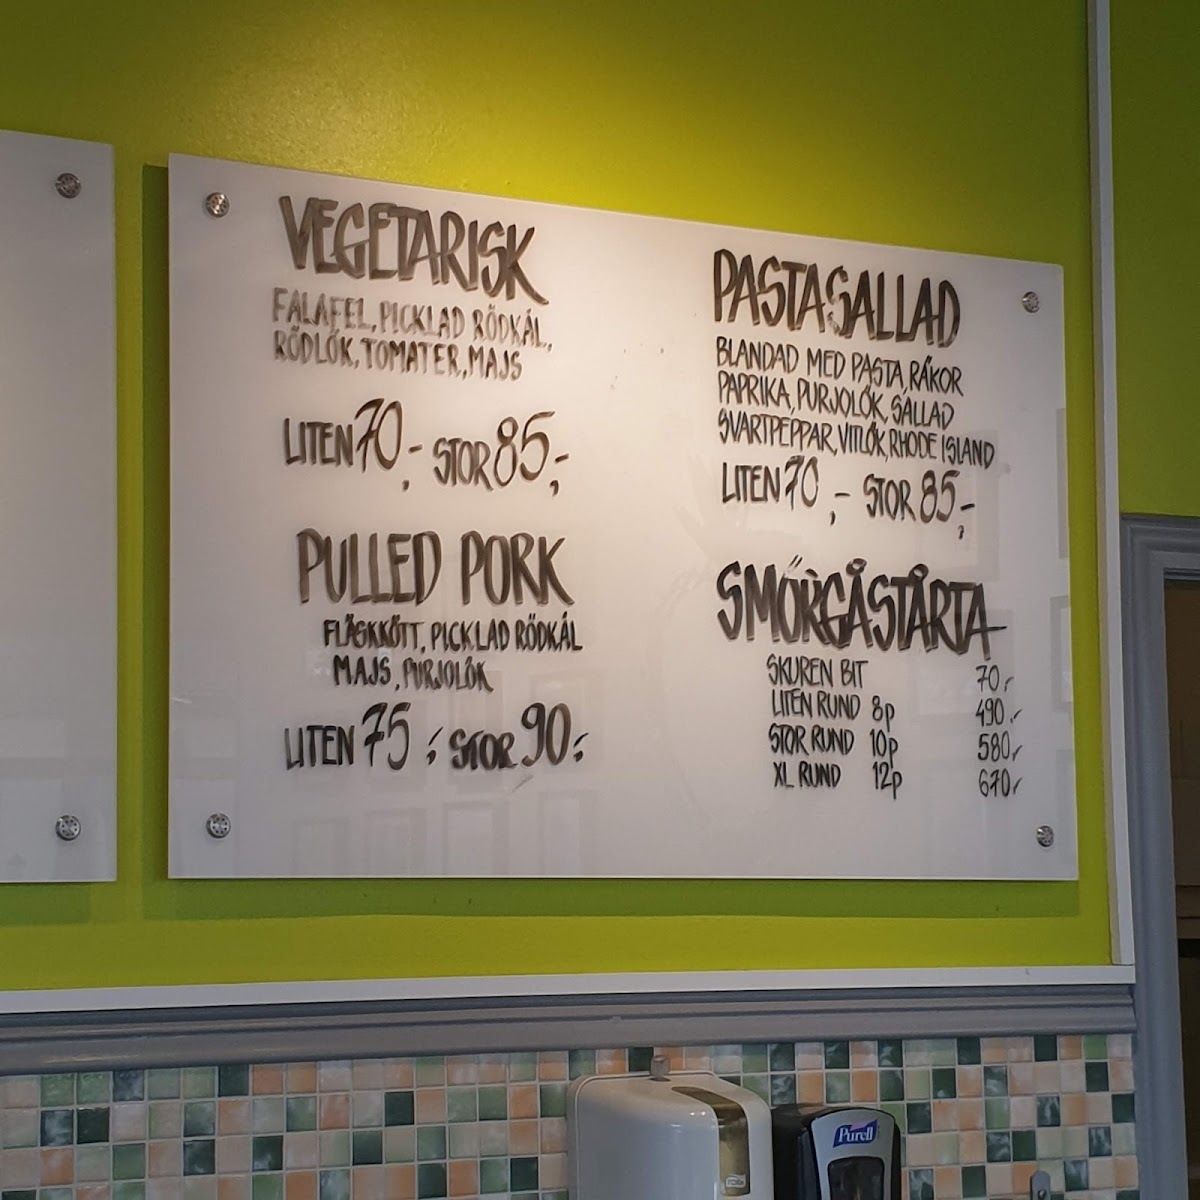 VEGETARISK
FALAFEL, PICKLAD RÖDKÅL,
RÖDLÖK, TOMATER, MAJS
LITEN 70,- STOR 85,-
PULLED PORK
FLÄSKKÖTT, PICKLAD RÖDKÅL
MAJS, PURJOLÖK
LITEN 75,- STOR 90,-
PASTASALLAD
BLANDAD MED PASTA, RÄKOR
PAPRIKA, PURJOLÖK, SALLAD
SVARTPEPPAR, VITLÖK, RHODE ISLAND
LITEN 70,- STOR 85,-
SMÖRGÅSTÅRTA
SKUREN BIT 70,-
LITEN RUND 8p 490,-
STOR RUND 10p 580,-
XL RUND 12p 670,-
Purell